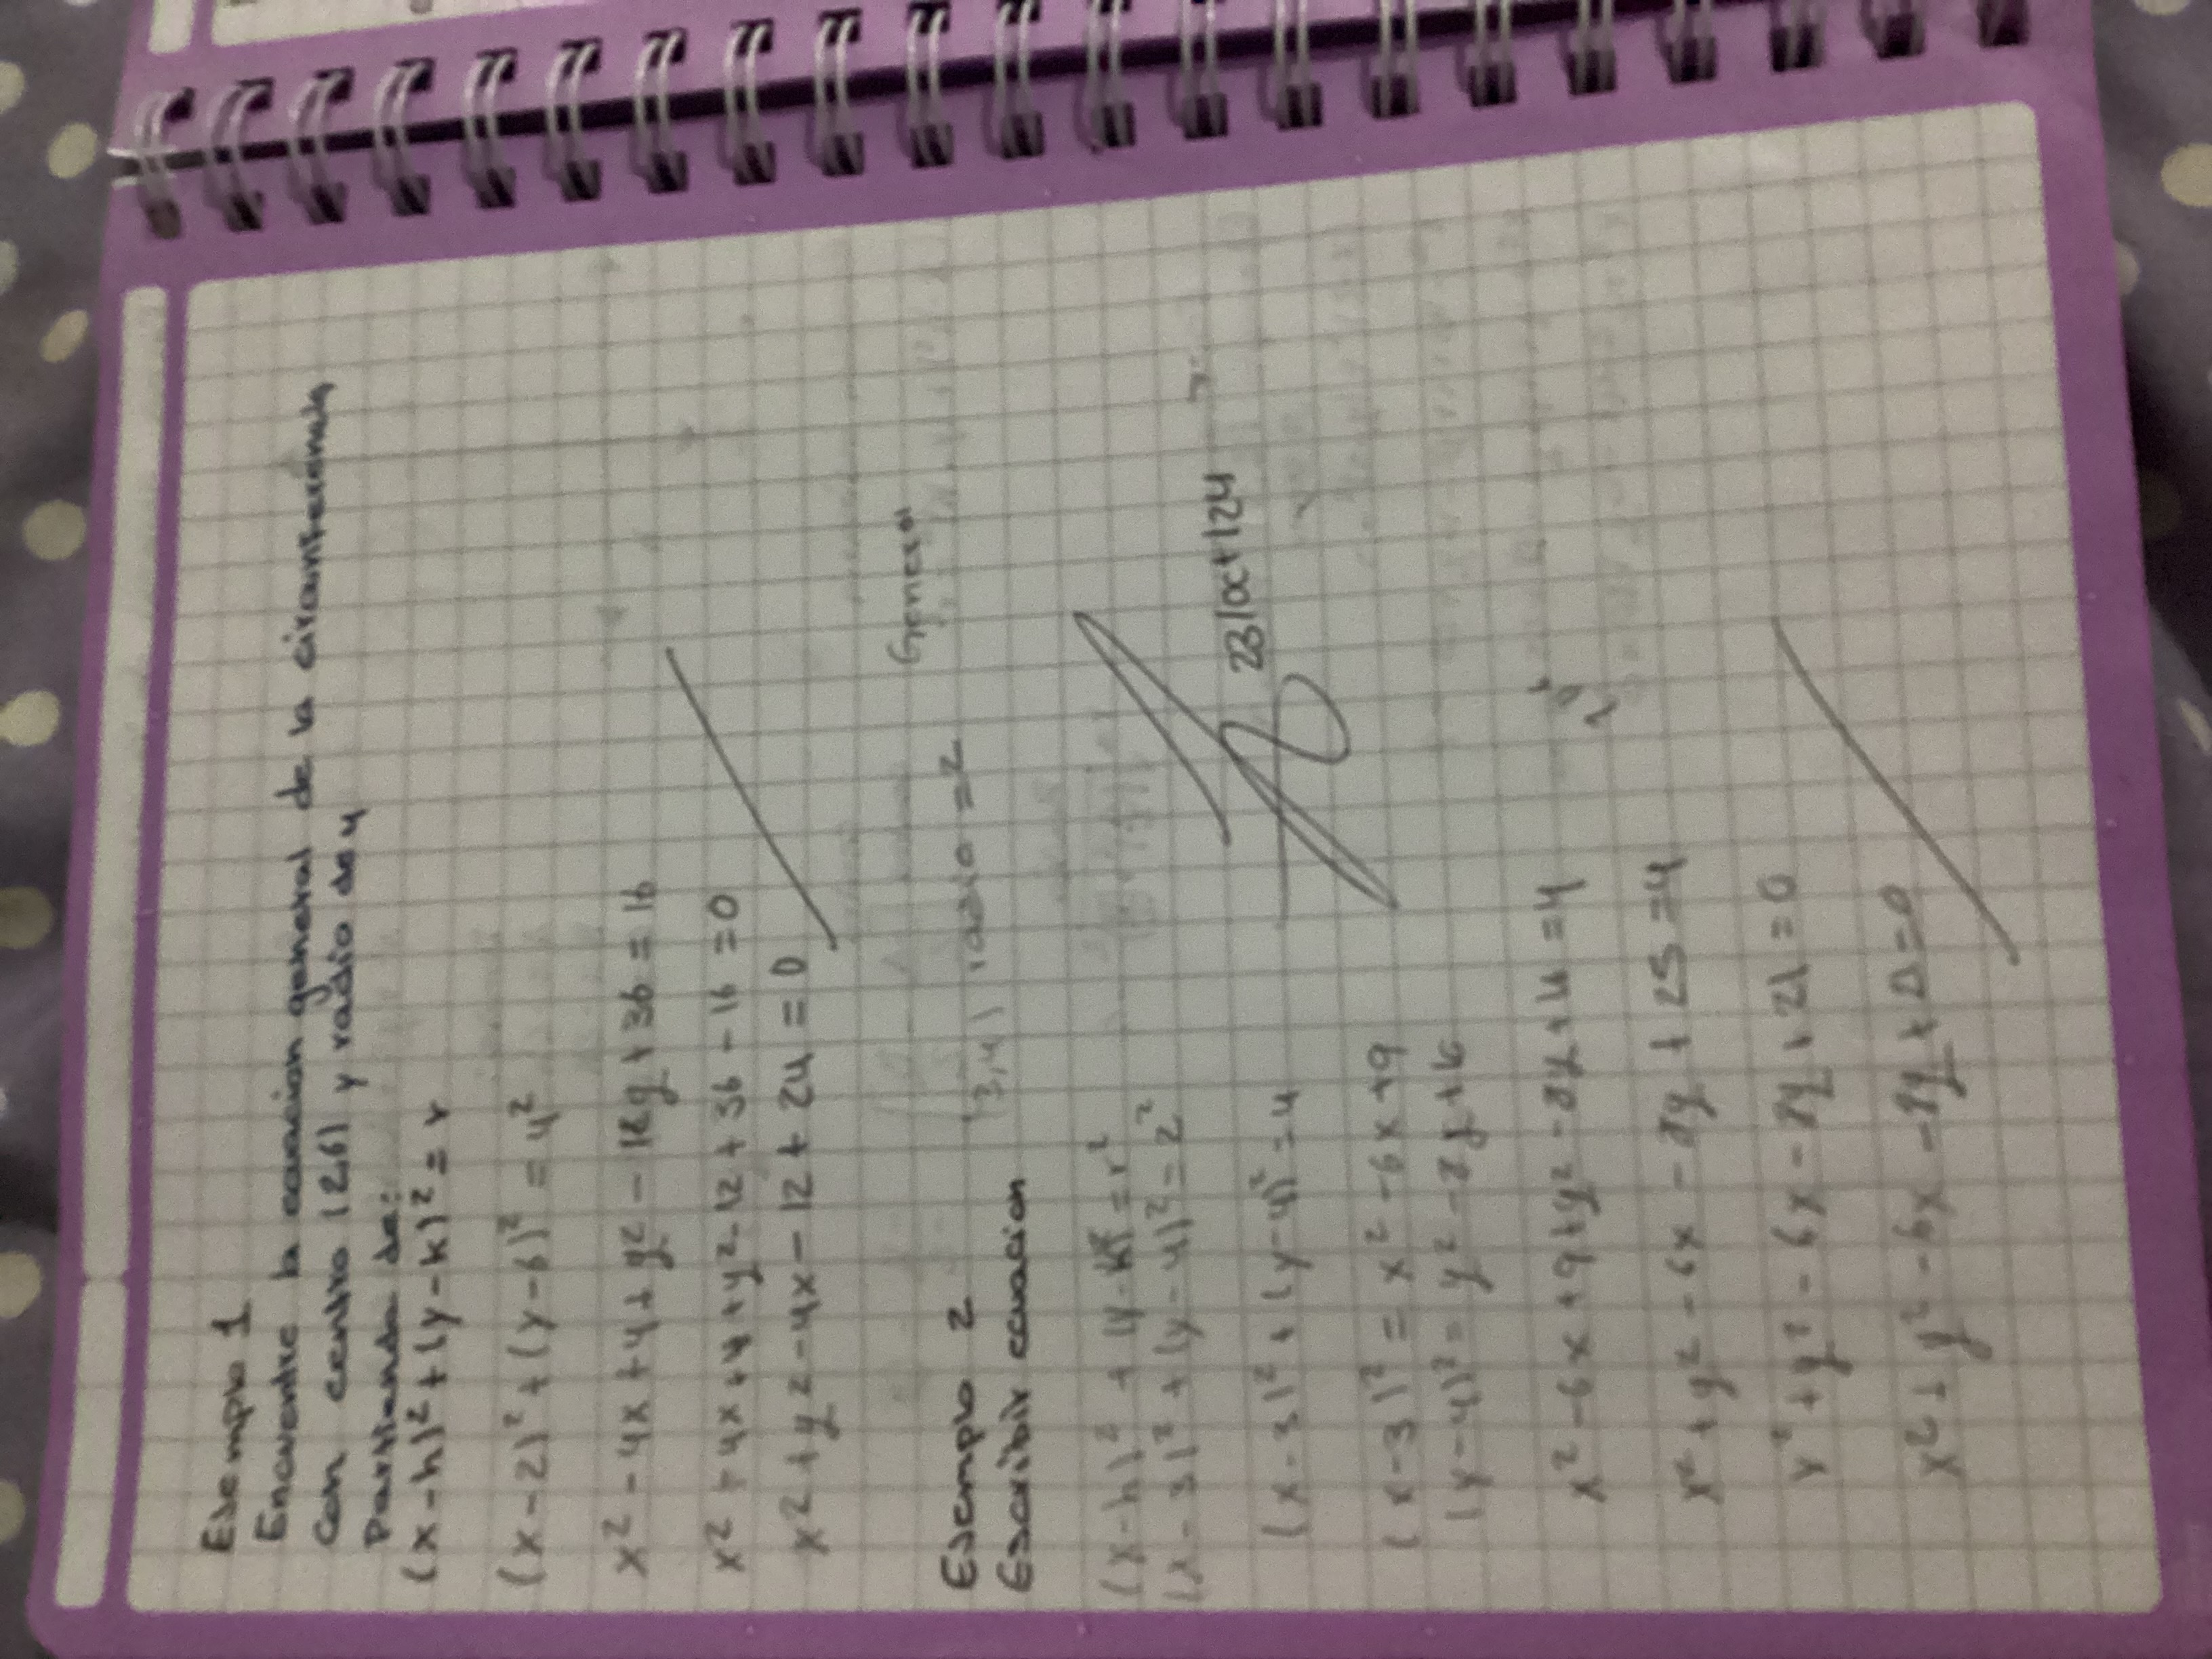 Ejemplo 1
Encuentre la ecuacion general de la circunferencia
con centro (2,6) y radio de 4
Partiendo de:
(x-h)²+(y-k)²=r
(x-2)²+(y-6)²=4²
x²-4x+4+y²-12y+36=16
x²-4x+4+y²-12+36-16=0
x²+y²-4x-12+24=0
Ejemplo 2
General
Escribir ecuacion (3,4) radio=2
(x-h)²+(y-k)²=r²
(x-3)²+(y-4)²=2²
(x-3)²+(y-4)²=4
23/oct/24
(x-3)²=x²-6x+9
(y-4)²=y²-8y+16
x²-6x+9+y²-8y+16=4
x²+y²-6x-8y+25=4
x²+y²-6x-8y+21=0
x²+y²-6x-8y+21=0